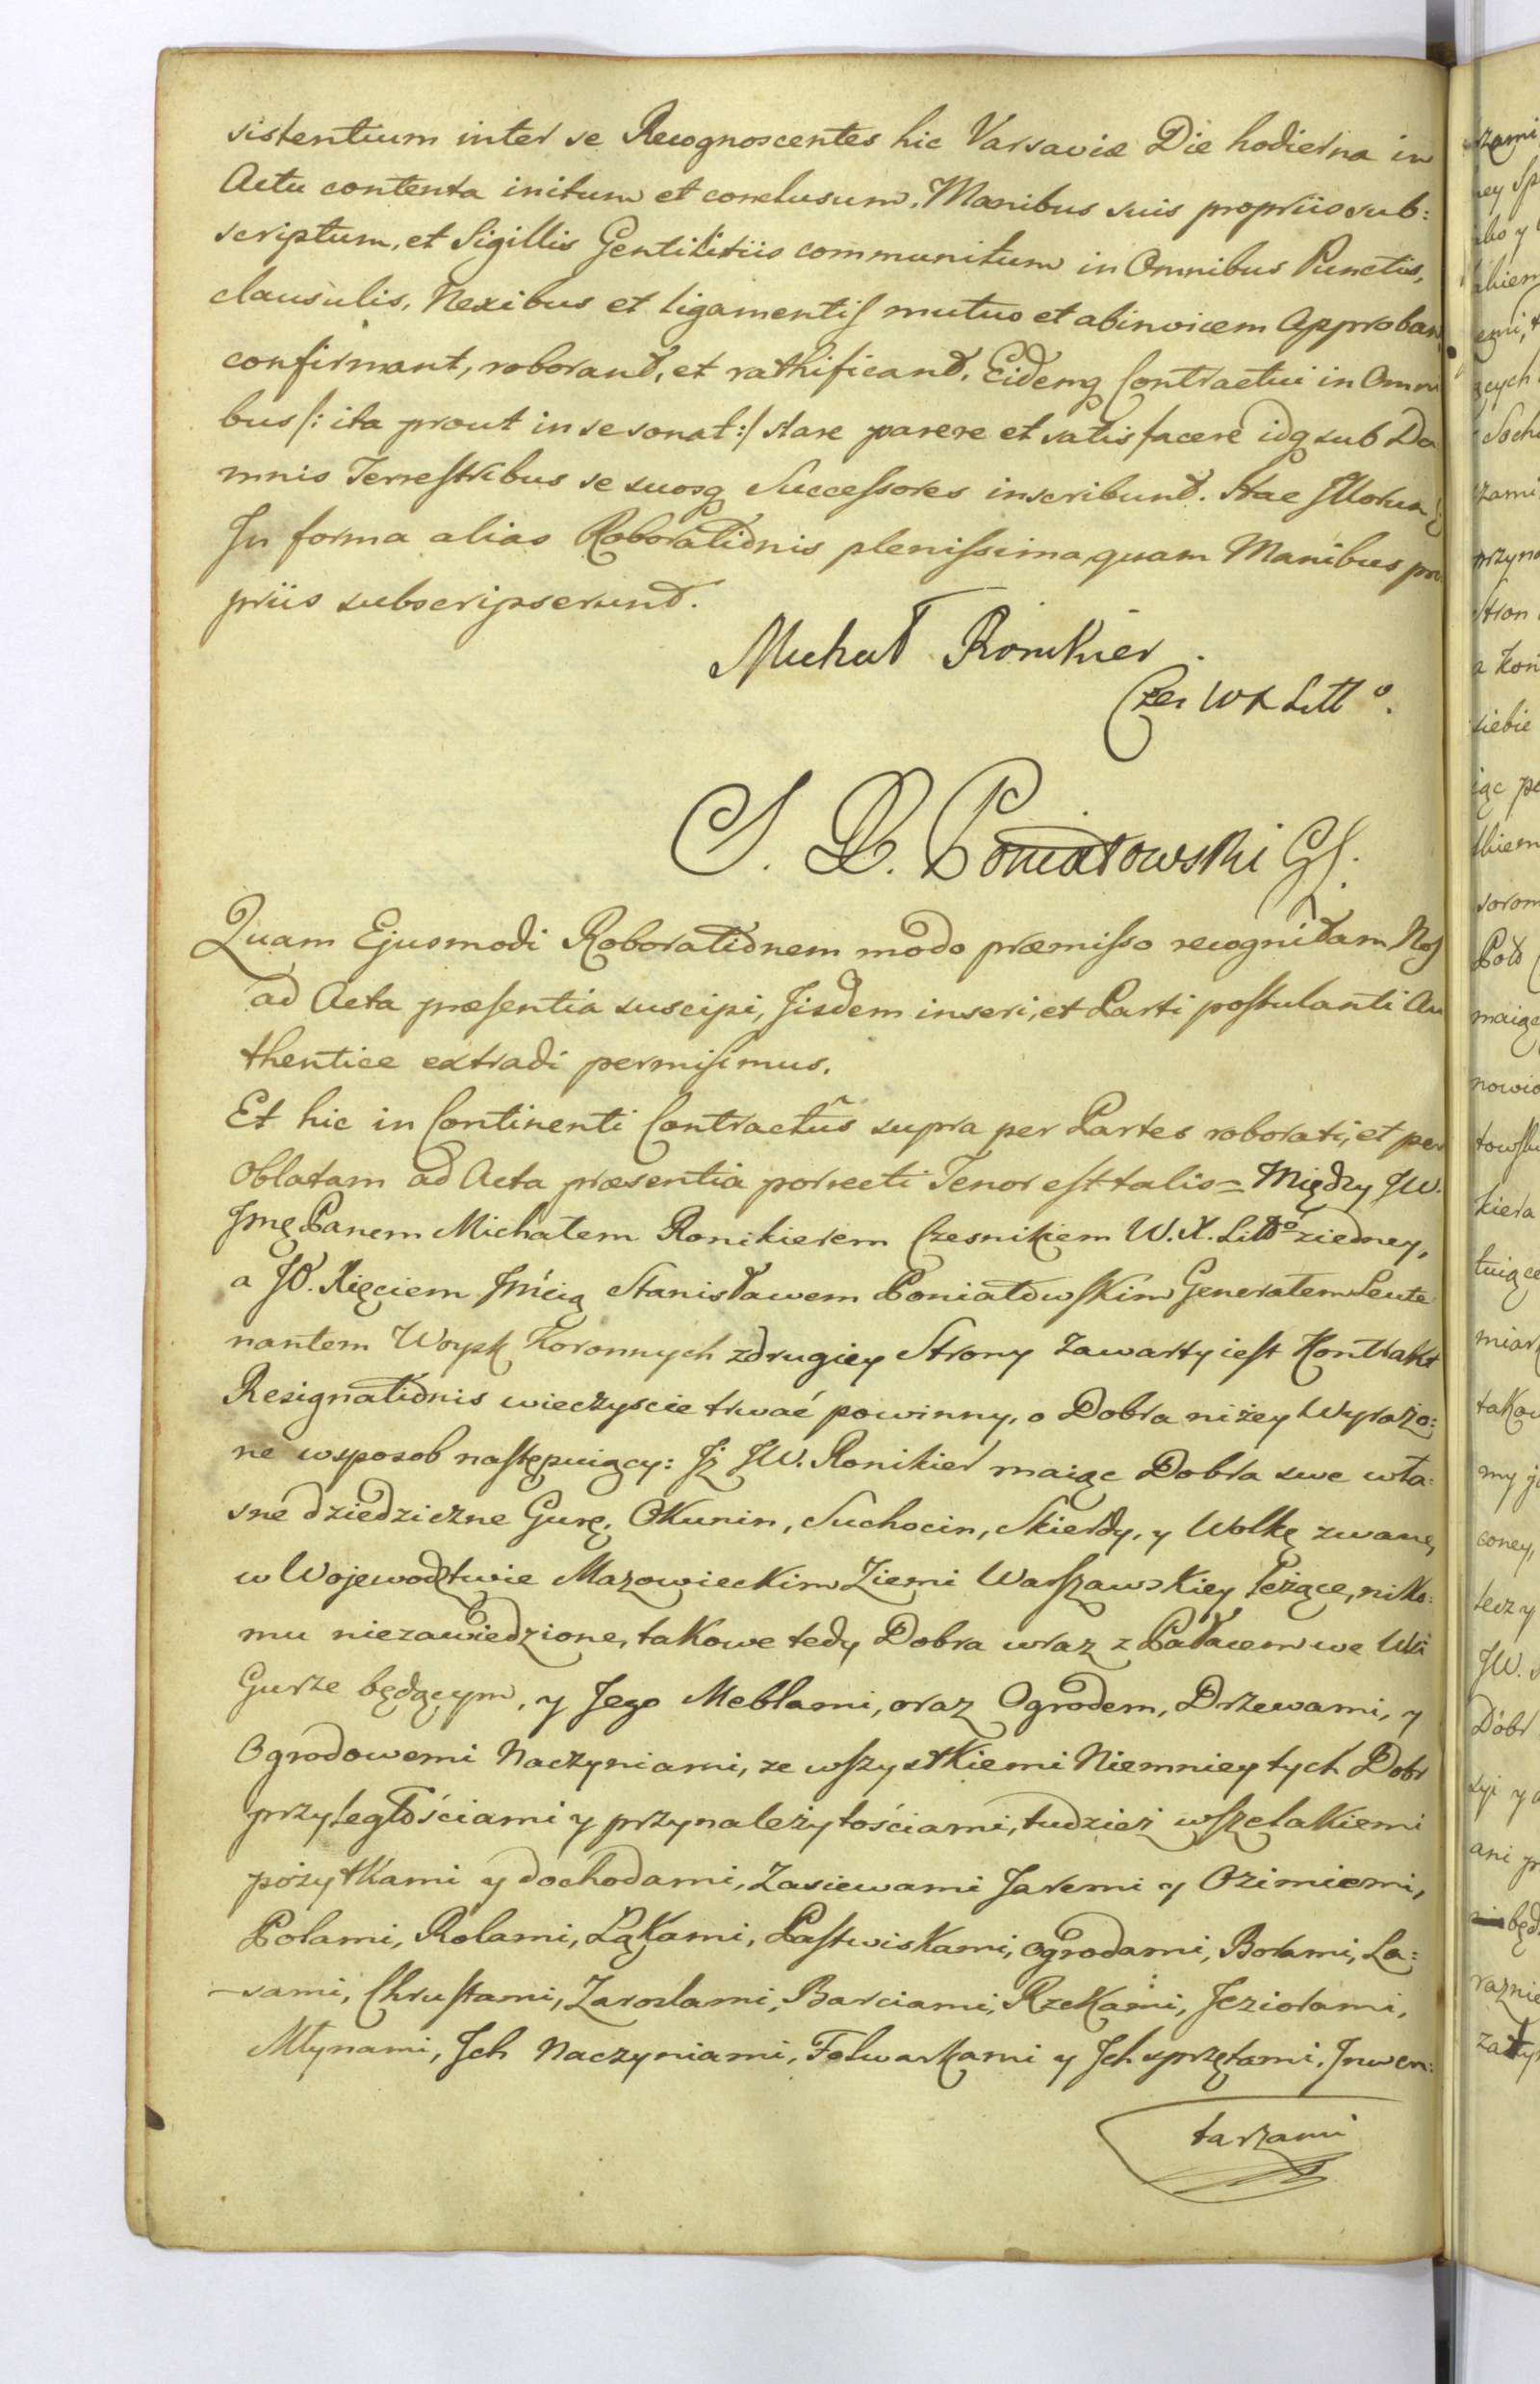 sistentium inter se Recognoscentes hic Varsaviæ Die hodierna in
Actu contenta initum et conclusum, Manibus suis propriis sub:
scriptum, et Sigillis Gentilitiis communitum in Omnibus Punctis,
clausulis, Nexibus et ligamentis mutuo et abinvicem Approban
confirmant, roborant, et rathificant, Eidemq Contractui in Omni
bus /: ita prout in se sonat :/ stare parere et satisfacere idq sub Da
mnis Terrestribus se suosq Successores inscribunt. Hac Illorum
In forma alias Roborationis plenissima, quam Manibus pro
priis subscripserunt.
Michał Ronikier.
Czes WX Litto.
S. X. Poniatowski GL.
Quam Ejusmodi Roborationem modo præmisso recognitam Nos
ad Acta præsentia suscipi, Iisdem inseri, et Parti postulanti Au
thentice extradi permisimus.
Et hic in Continenti Contractũs supra per Partes roborati, et per
Oblatam ad Acta præsentia porrecti Tenor est talis = Między JW.
Jmę Panem Michałem Ronikierem Czesnikiem W. X. Litto ziedney,
a JO. Xięciem Jmcią Stanisławem Poniatowskim Generałem Leute
nantem Woysk Koronnych zdrugiey Strony zawarty iest Kontrakt
Resignationis wieczyscie trwać powinny, o Dobra niżey Wyrażo:
ne wsposob następuiący: Iż JW. Ronikier maiąc Dobra swe wła:
sne dziedziczne Gurę, Okunin, Suchocin, Skierdy, y Wolkę zwane,
w Wojewodztwie Mazowieckim Ziemi Warszawskiey leżące, niko:
mu niezawiedzione, takowe tedy Dobra wraz z Pałacem we Wsi
Gurze będącym, y Jego Meblami, oraz Ogrodem, Drzewami, y
Ogrodowemi Naczyniami, ze wszystkiemi Niemniey tych Dobr
przyległościami y przynależytościami, tudzież wszelakiemi
pożytkami y dochodami, Zasiewami Jaremi y Ozimiemi,
Polami, Rolami, Łąkami, Pastwiskami, ogrodami, Borami, La:
sami, Chrustami, Zaroslami, Barciami, Rzekami, Jeziorami,
Młynami, Ich Naczyniami, Folwarkami y Ich sprzętami, Inwen:
tarzami